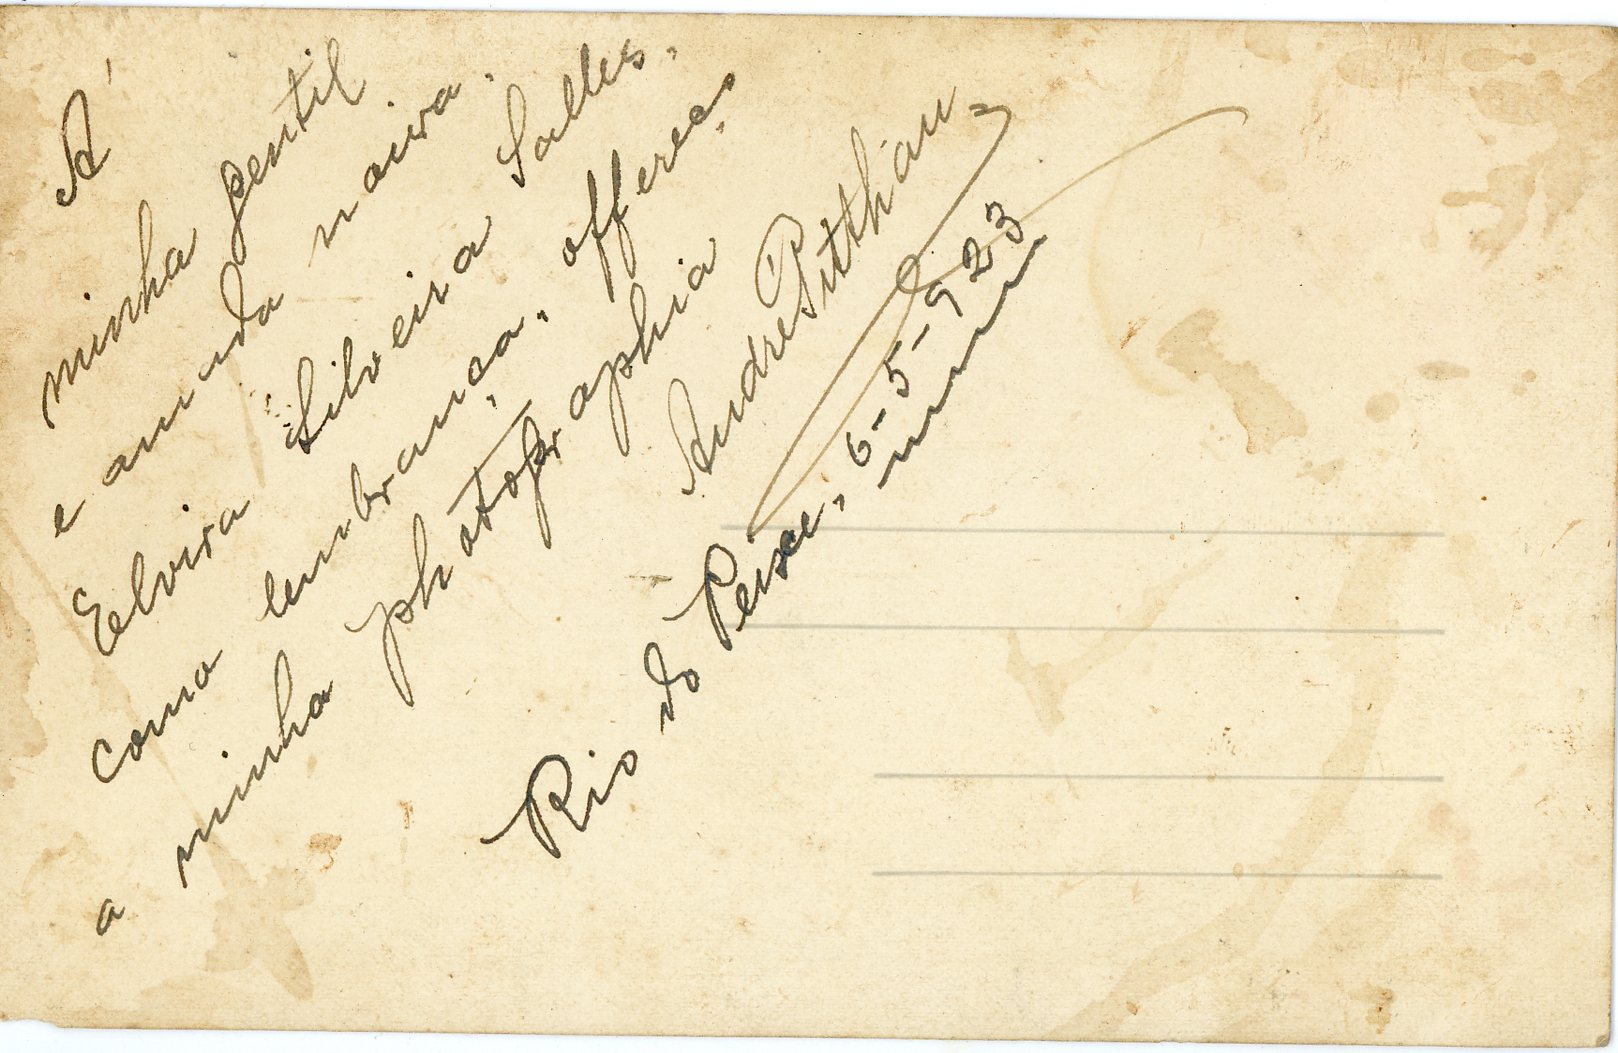 Á
minha gentil
e amada noiva.
Elvira Silveira Salles,
como lembrança, offereço
a minha photographia
Andre Pitthan
Rio do Peixe, 6-5-923